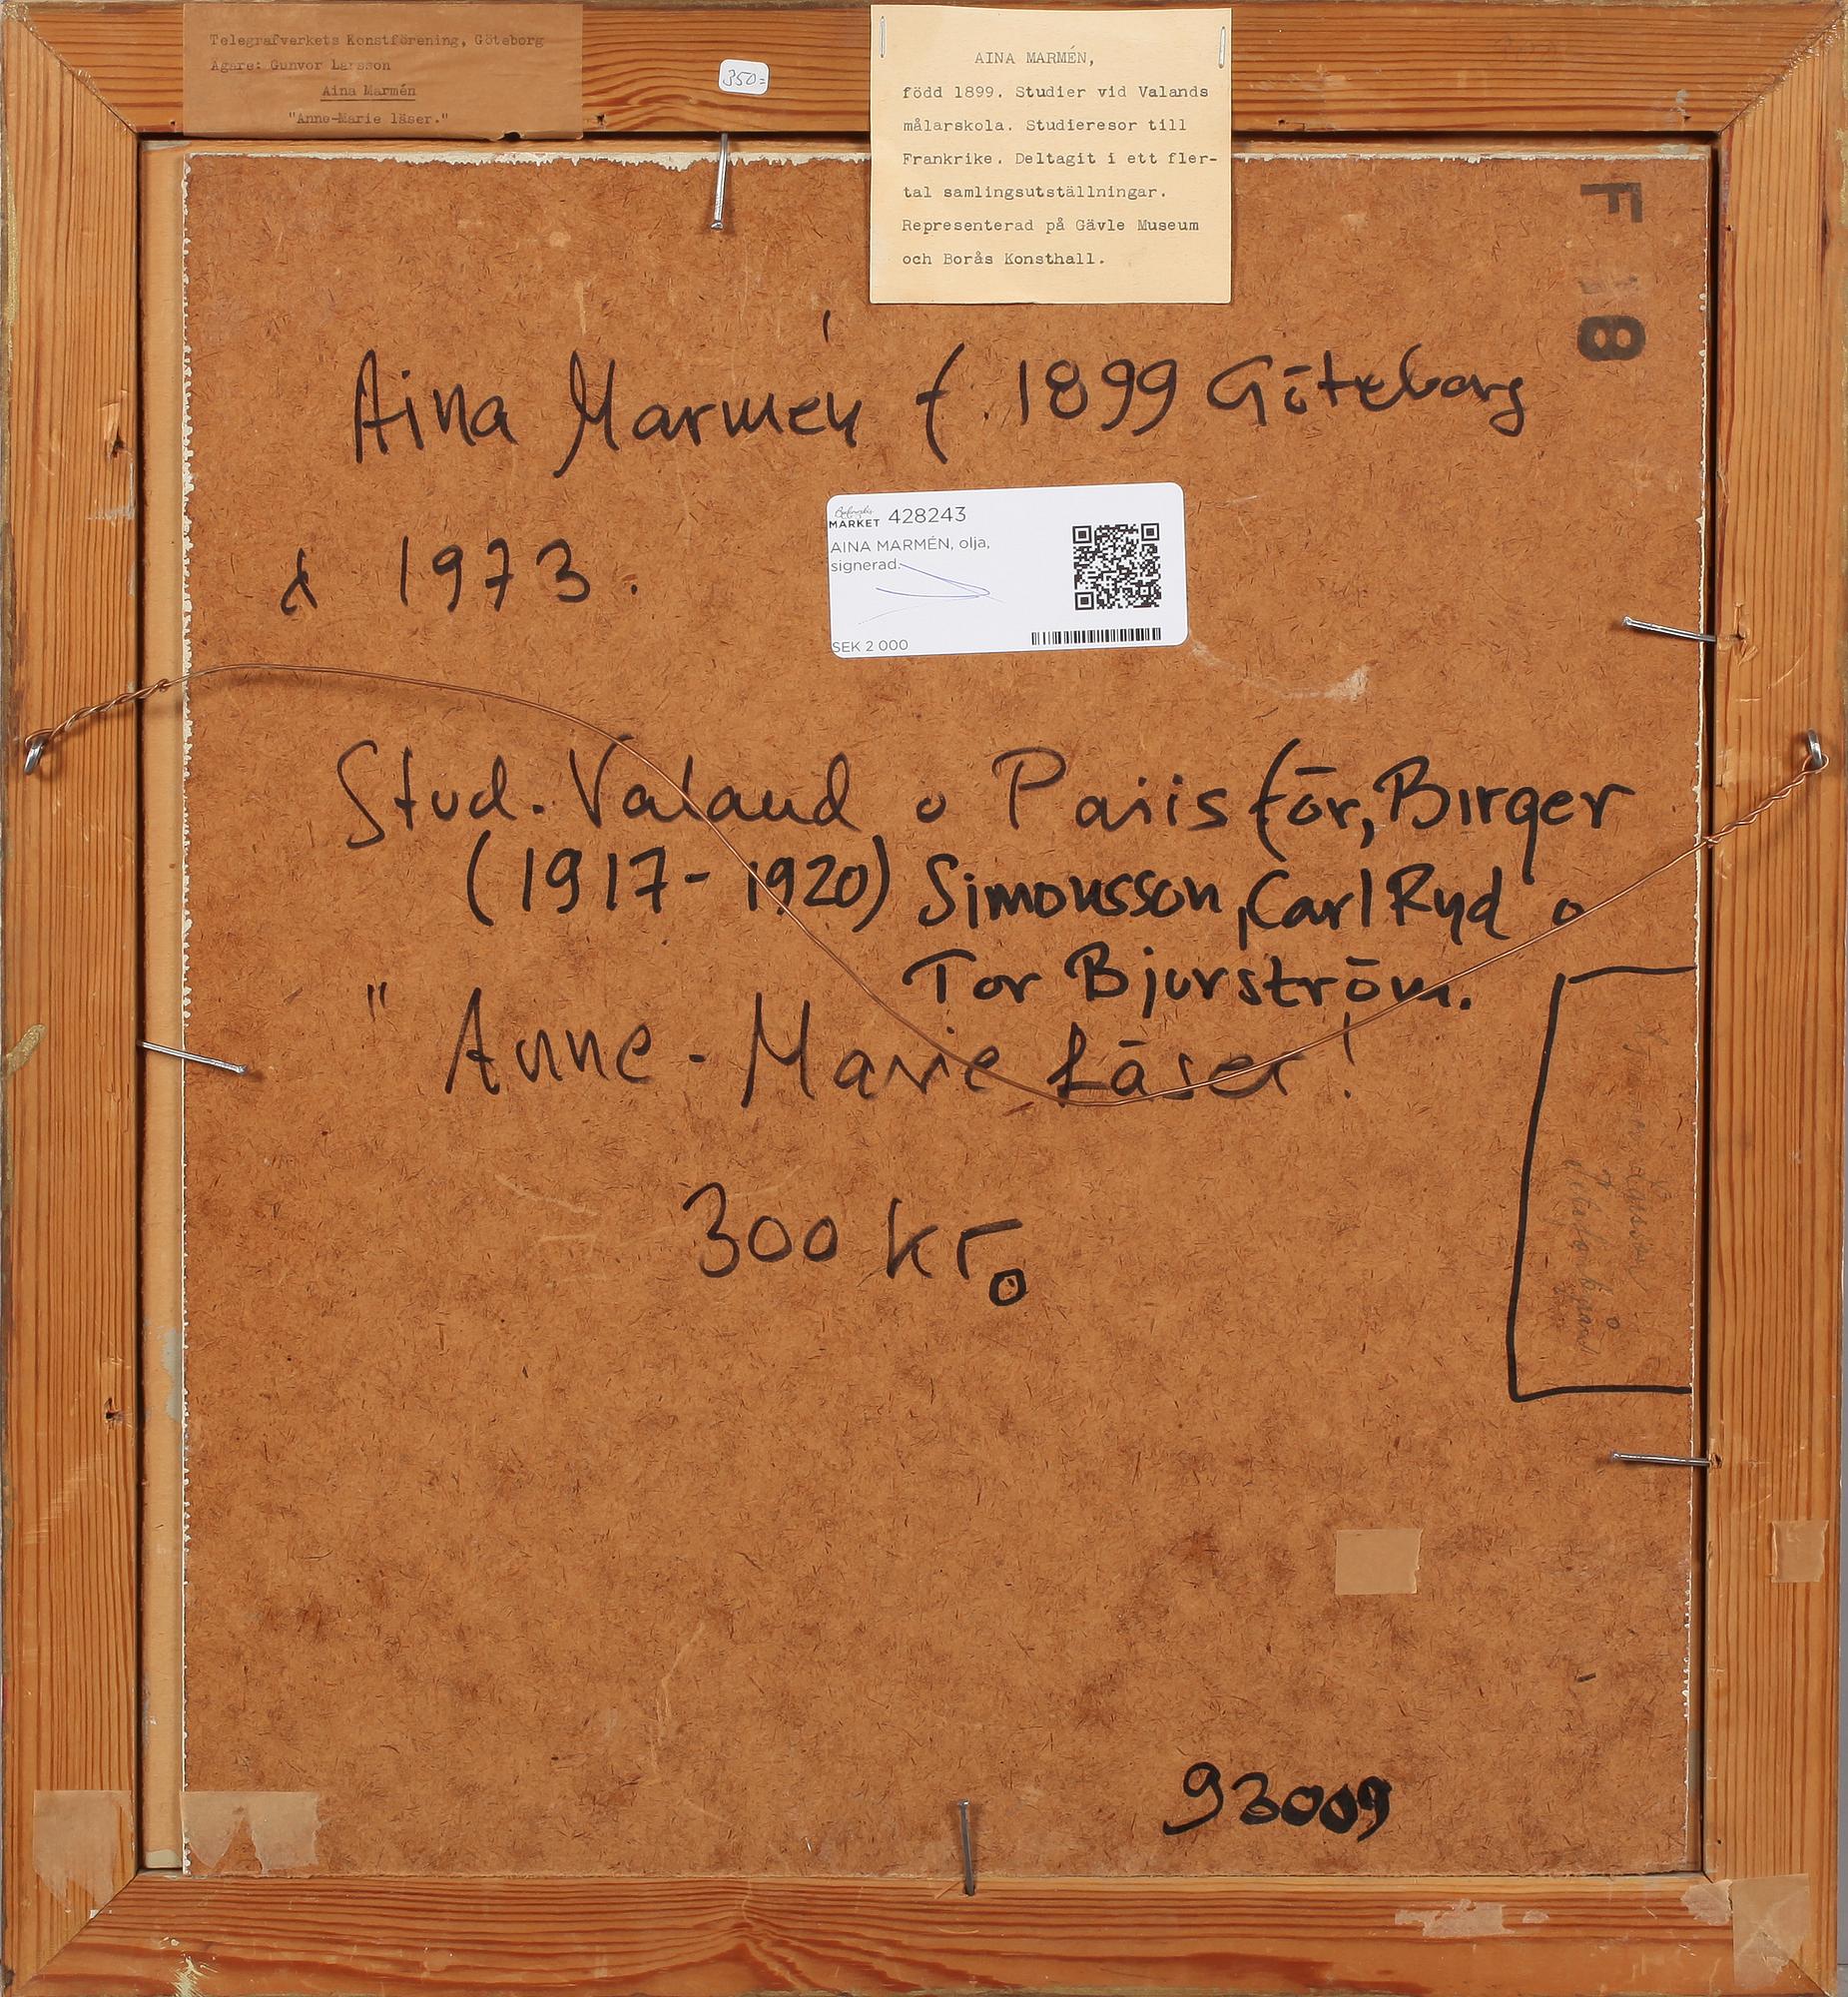 Telegrafverkets Konstförening, Göteborg
Ägare: Gunvor Larsson
Aina Marmén
"Anne-Marie läser."
350=
AINA MARMÉN,
född 1899. Studier vid Valands
målarskola. Studieresor till
Frankrike. Deltagit i ett fler-
tal samlingsutställningar.
Representerad på Gävle Museum
och Borås Konsthall.
F 18
Aina Marmén f. 1899 Göteborg
d 1973.
MARKET 428243
AINA MARMÉN, olja,
signerad.
SEK 2 000
Stud. Valand o Paris för, Birger
(1917-1920) Simonsson, Carl Ryd o
Tor Bjurström.
" Anne-Marie Läser!
300 kr
93009